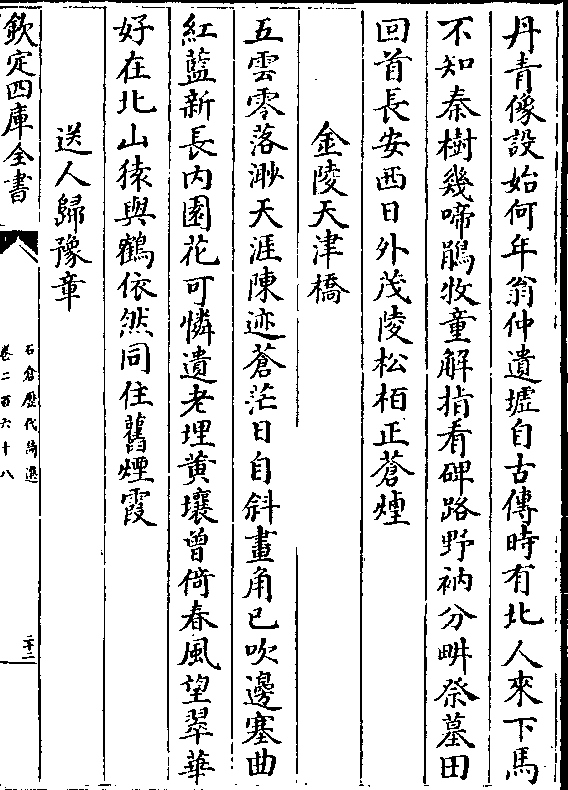 丹青像設始何年翁仲遺墟自古傳時有北人來下馬
不知秦樹幾啼鵑牧童解指看碑路野衲分畊祭墓田
回首長安西日外茂陵松栢正蒼煙
金陵天津橋
五雲零落渺天涯陳迹蒼茫日自斜畫角已吹邊塞曲
紅藍新長内園花可憐遺老埋黄壤曾倚春風望翠華
好在北山猿與鶴依然同住舊煙霞
送人歸豫章
欽定四庫全書
石倉歴代詩選
卷二百六十八
二十二